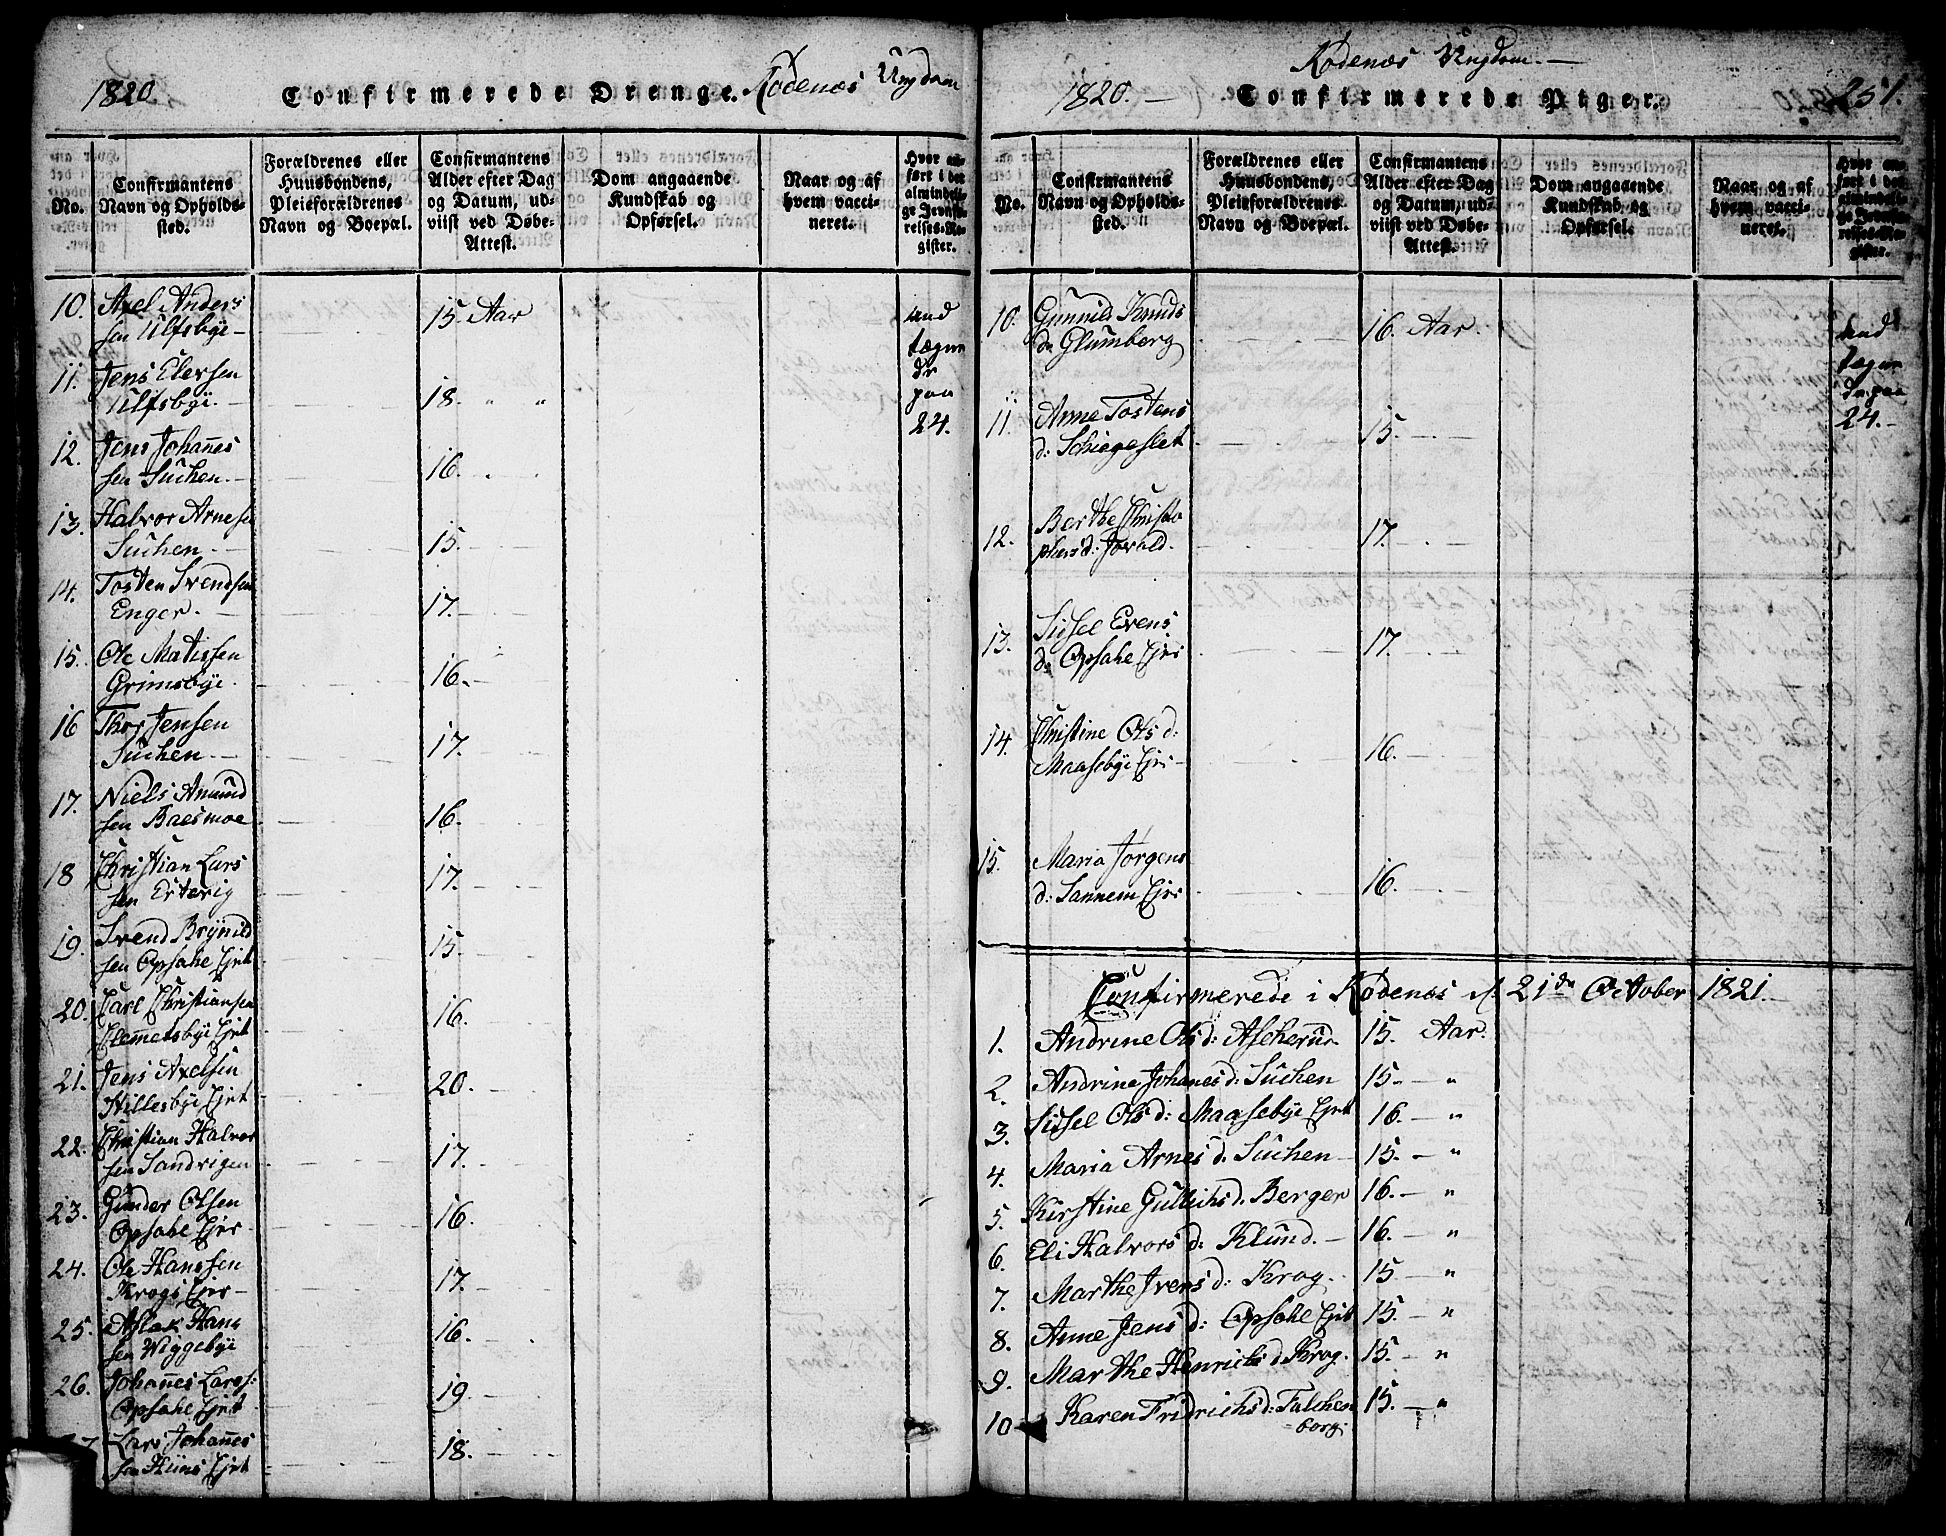 1820.
Confirmerede Drenge. Rødenæs Ungdom
No.
Confirmantens
Navn og Opholds-
sted.
Forældrenes eller
Huusbondens,
Pleieforældrenes
Navn og Boepæl.
Confirmantens
Alder efter Dag
og Datum, ud-
viist ved Døbe-
Attest.
Dom angaaende
Kundskab og
Opførsel.
Naar og af
hvem vacci-
neret.
Hvor an-
ført i det
almindeli-
ge Jevnfø-
relses-Re-
gister.
10. Axel Anders
sen Ulfsbye - 15 Aar
11. Jens Elersen
Ulfsbyi. - 18. " "
12. Jens Johañes
sen Suchen. - 16.
13. Halvor Arnesen
Suchen. - 15.
14. Tosten Svendsen
Enger. 17.
15. Ole Matissen
Grimsbye. 16.
16 Thor Jensen
Suchen - 17.
17. Niels Amund
sen Baesmoe 16.
18 Christian Lars
sen Erterig 17.
19. Svend Brynild
sen Opsahe Ejet 15.
20. Carl Christiansen
Clemetsbye Ejet 16.
21. Jens Axelsen
Hillesbye Ejet 20.
22. Christian Halvor
sen Sandvigen 17.
23. Gunder Olsen
Opsahe Ejer 16.
24. Ole Hanssen
Krogs Ejer - 17.
25. Aslak Hans
sen Wiggebye 16.
26. Johañes Lars:
Opsahe Ejet 19.
Lars Johañes
sen Hüns Ejet 18.
und
tægne
de
paa
24.
Rødenæs Ungdom. -
1820. -
Confirmerede Piger. 251.
No.
Confirmantens
Navn og Opholds-
sted.
Forældrenes eller
Huusbondens,
Pleieforældrenes
Navn og Boepæl.
Confirmantens
Alder efter Dag
og Datum, ud-
viist ved Døbe-
Attest.
Dom angaaende
Kundskab og
Opførsel.
Naar og af
hvem vacci-
neret.
Hvor an-
ført i det
almindeli-
ge Jevnfø-
relses-Re-
gister.
10. Gunnild Knuds
d: Glumberg 16. Aar.
11. Anne Tostens
d: Schiegeslet 15.
12. Berthe Christo
phersd: Jovald. 17.
13. Sidsel Evens
d: Opsahe Ejer 17.
14. Christine Olsd:
Maasebye Ejer - 16.
15. Maria Jørgens
d: Sannem Ejer 16.
und
tægne
de paa
24. -
Confirmerede i Rødenæs d. 21de October 1821.
1. Andrine Olsd: Ascherud 15. Aar.
2. Andrina Johanesd: Suchen 15. "
3. Sidsel Olsd: Maasebye Ejet 16. "
4. Maria Arnesd: Suchen - 15. - "
5. Kirstine Gulbichsd. Berger 16. - "
6. Eli Halvorsd: Klund. - 16. - "
7. Marthe Iversd: Krog. 15 - "
8. Anne Jensd: Opsahe Ejet 15. - "
9. Marthe Henrichsd. Krog. 15. - "
10 Karen Fridrichsd: Falchen 15. - "
=borg.